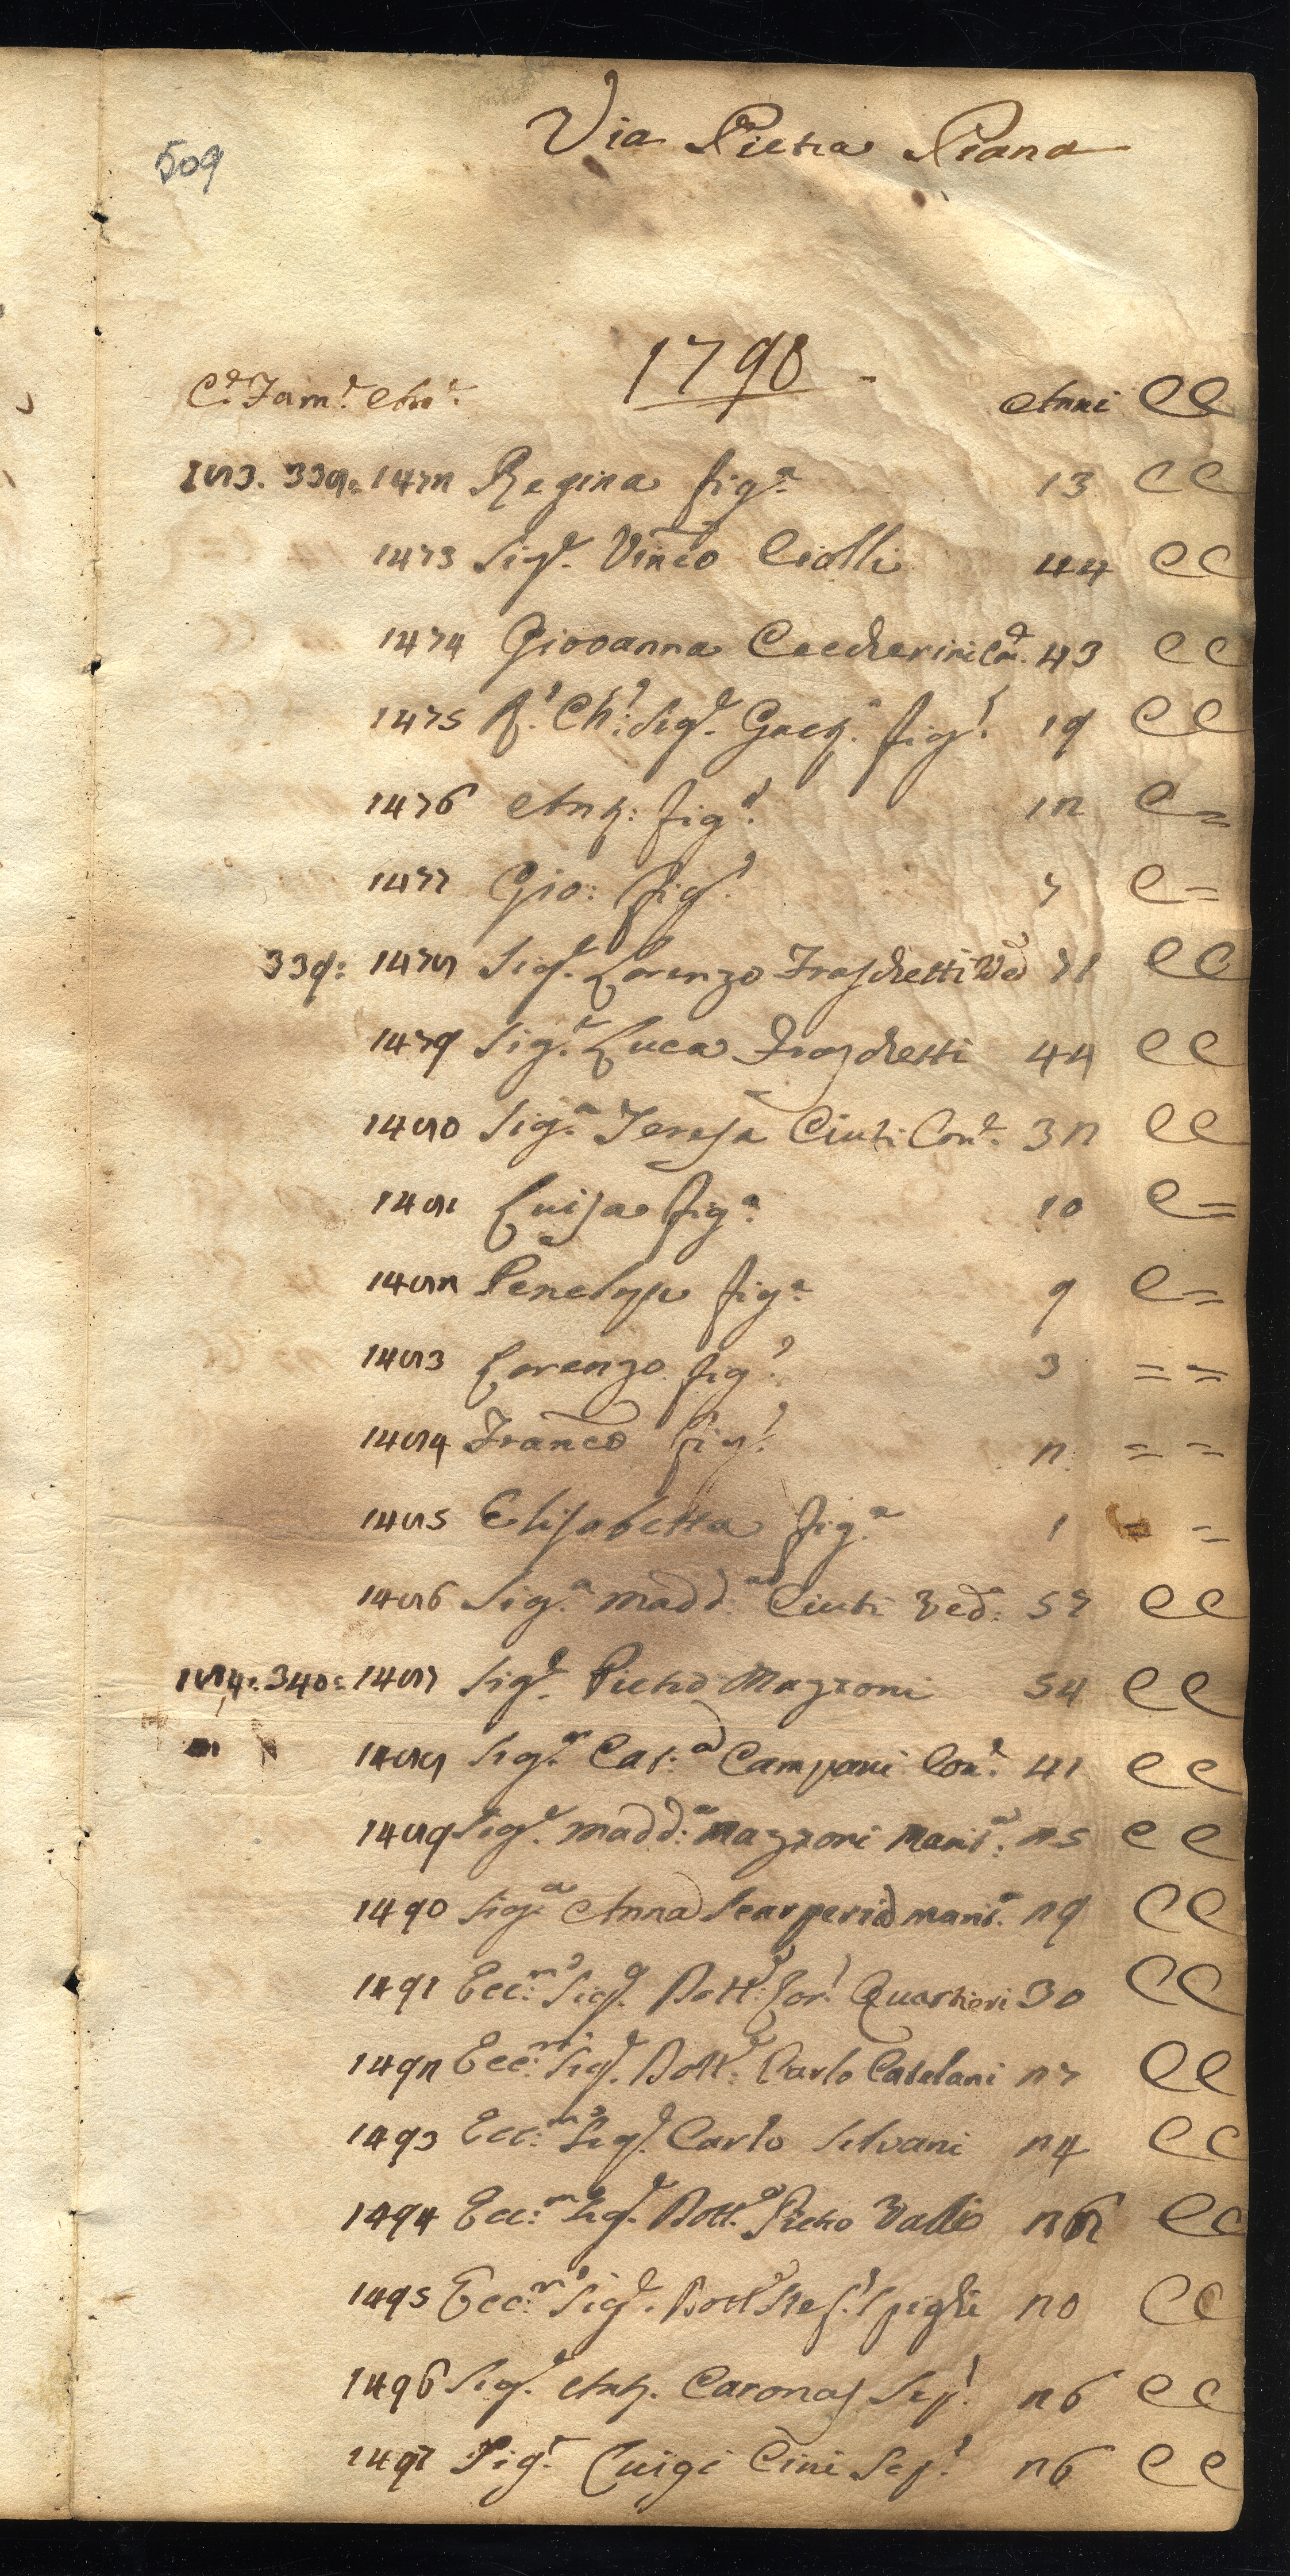 509
Via Pietra Piana
1798
C.e Fam.e An.e Anni CC
183. 338. 1472 Regina fig.a 13 CC
1473 Sig.r Vinc.o Ciolli 44 CC
1474 Giovanna Ceccherini Con.e 43 CC
1475 Ch.o Sig.r Gaet.o fig.o 19 CC
1476 Ant.o fig.o 12 C=
1477 Gio: fig.o 7 C=
339: 1478 Sig.r Lorenzo Fraschetti Ved.o 71 CC
1479 Sig.r Luca Fraschetti 44 CC
1480 Sig.a Teresa Ciuti Con.e 32 CC
1481 Luisa fig.a 10 C=
1482 Penelope fig.a 9 C=
1483 Lorenzo fig.o 3 ==
1484 Franc.o fig.o 2 ==
1485 Elisabetta fig.a 1 ==
1486 Sig.a Madd.a Ciuti Ved.a 57 CC
184: 340: 1487 Sig.r Pietro Mazzoni 54 CC
1488 Sig.a Cat.a Campani Con.e 41 CC
1489 Sig.a Madd.a Mazzoni Marit.a 25 CC
1490 Sig.a Anna Scarperia Marit.a 29 CC
1491 Ecc.mo Sig.r Dott.r Lor.o Quartieri 30 CC
1492 Ecc.mo Sig.r Dott.r Carlo Catelani 27 CC
1493 Ecc.mo Sig.r Carlo Silvani 24 CC
1494 Ecc.mo Sig.r Dott.r Pietro Valli CC
1495 Ecc.mo Sig.r Dott.r Stef.o Spighi 20 CC
1496 Sig.r Ant.o Caronas 26 CC
1497 Sig.r Luigi Cini 26 CC